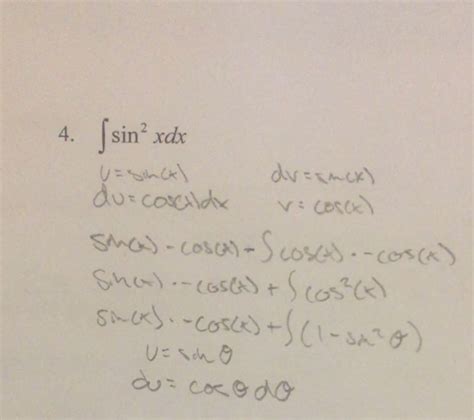 4. ∫ sin² xdx
u = sin(x) dv = sin(x)
du = cos(x)dx v = cos(x)
sin(x) · -cos(x) - ∫ cos(x) · -cos(x)
sin(x) · -cos(x) + ∫ cos²(x)
sin(x) · -cos(x) + ∫ (1 - sin² θ)
u = sin θ
du = cos θ dθ